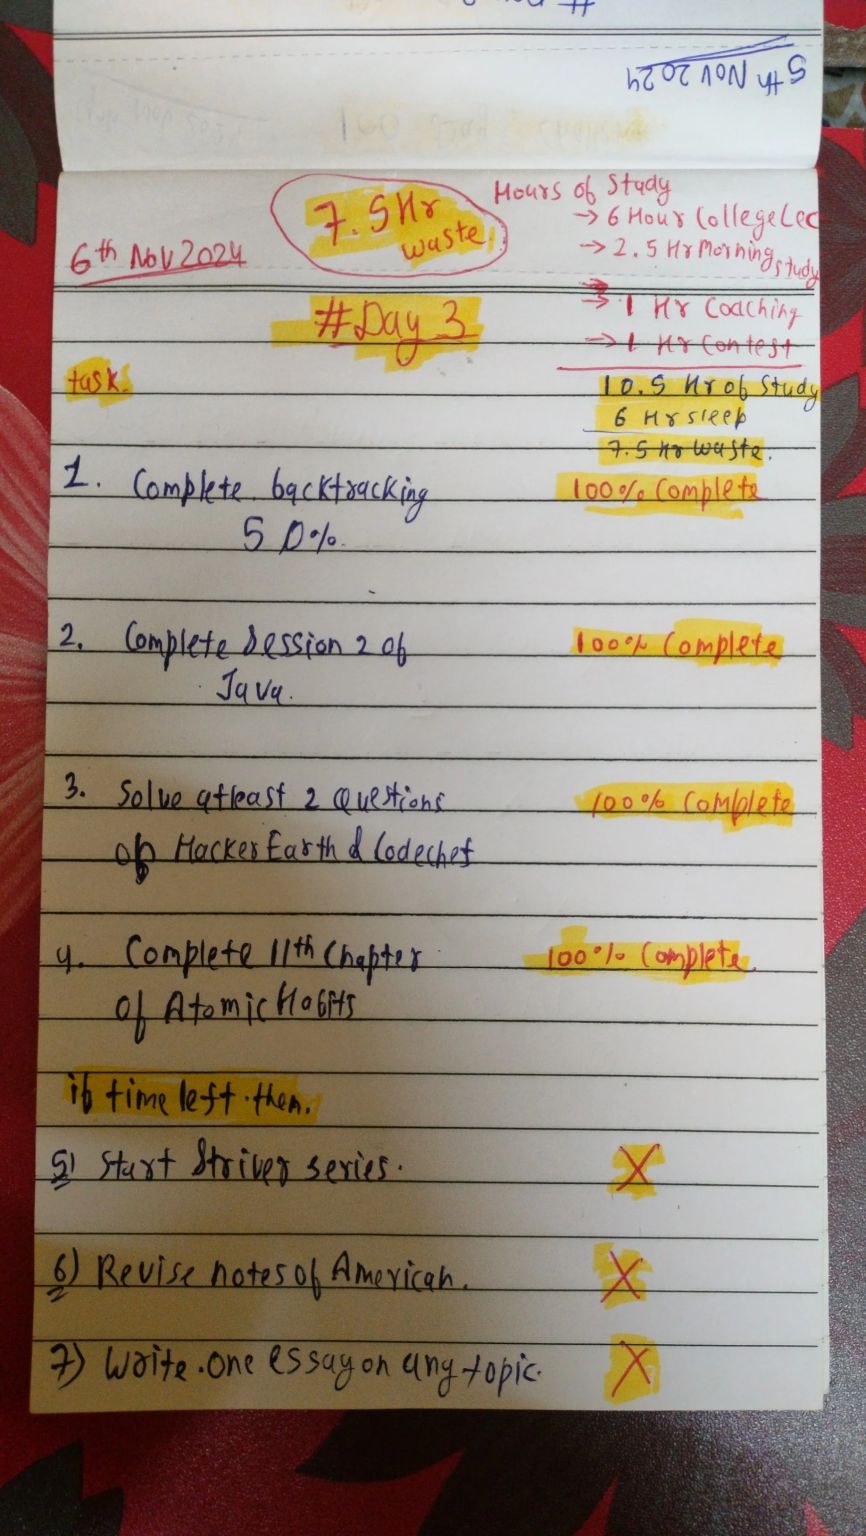 5th Nov 2024
6th Nov 2024
7.5 Hr
waste!
Hours of Study
→ 6 Hour College Lec
→ 2.5 Hr Morning study
→ 1 Hr Coaching
→ 1 Hr Contest
10.5 Hr of Study
6 Hr sleep
7.5 Hr waste.
#Day 3
task.
1. Complete backtracking 100% Complete
50%.
2. Complete Session 2 of 100% Complete
Java.
3. Solve atleast 2 Questions 100% Complete
of HackerEarth & Codechef
4. Complete 11th Chapter 100% Complete.
of Atomic Habits
if time left then.
5) Start Striver series. X
6) Revise notes of American. X
7) Write one essay on any topic. X